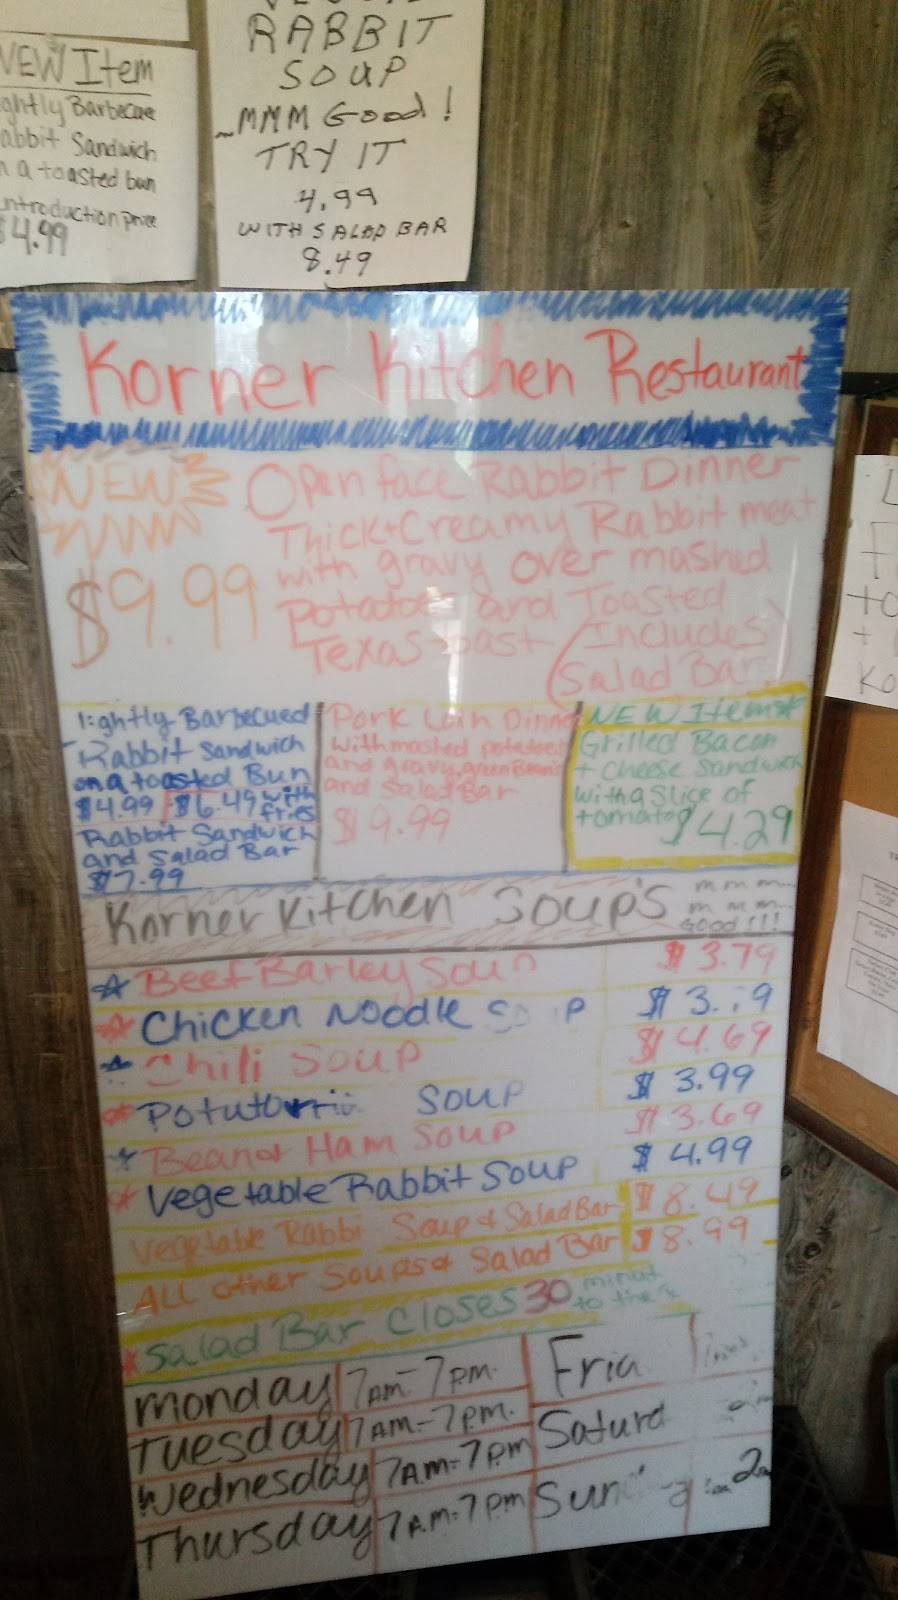 NEW Item
Barbecae
Sandwich
a toasted bun
introduction price
$4.99
RABBIT
SOUP
MMM Good!
TRY IT
4.99
WITH SALAD BAR
8.49
Korner Kitchen Restaurant
NEW
$9.99
Open face Rabbit Dinner
Thick + Creamy Rabbit meat
with gravy over mashed
Potatoes and Toasted
Texas toast (Includes
Salad Bar)
lightly Barbecued
Rabbit Sandwich
on a toasted Bun
$4.99 $6.49 with fries
Rabbit Sandwich
and Salad Bar
$7.99
Pork Loin Dinner
with mashed potatoes
and gravy, green Beans
and Salad Bar
$9.99
NEW Items
Grilled Bacon
+ cheese Sandwich
with a slice of
tomato $4.29
Korner Kitchen Soup's mmm... mmm... Good!!!
Beef Barley Soup $3.79
Chicken Noodle Soup
Chili Soup $4.69
Soup $3.99
Bean & Ham Soup $3.69
Vegetable Rabbit Soup $4.99
Vegetable Rabbi Soup & Salad Bar $8.49
ALL other Soups & Salad Bar $8.99
Salad Bar Closes 30 minut
Monday 7AM-7PM.
Tuesday 7AM-7PM.
Wednesday 7AM-7PM
Thursday 7AM-7PM
Fria
Saturd
Sun